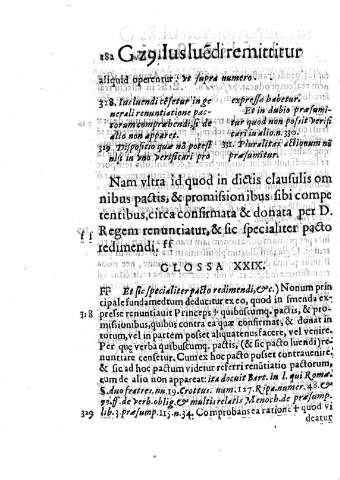 182 G 29. Ius luẽdi remittitur
aliquid operentur, vt supra numero.
328. Ius luendi cẽsetur in ge
nerali renuntiatione pac-
torum comprehendi, si de
alio non apparet.
329. Dispositio quæ nõ potest
nisi in vno verificari pro
expressa habetur.
Et in dubio præsumi-
tur quod non possit verifi
cari in alio. n. 330.
331. Pluralitas actionum nõ
præsumitur.
Nam vltra id quod in dictis clausulis om
nibus pactis, & promissionibus sibi compe
tentibus, circa confirmata & donata per D.
ff Regem renuntiatur, & sic specialiter pacto
redimendi. ff
GLOSSA XXIX.
FF Et sic specialiter pacto redimendi, &c.) Nonum prin
cipale fundamẽtum deducitur ex eo, quod in smenda ex-
328 presse renuntiauit Princeps † quibuscumq. pactis, & pro-
missionibus, quibus contra ea quæ confirmat, & donat in
totum, vel in partem posset aliquatenus facere, vel venire.
Per quæ verba quibuscumq. pactis, (& sic pacto luendi) re-
nuntiare censetur. Cum ex hoc pacto posset contrauenire,
& sic ad hoc pactum videtur referri renũtiatio pactorum,
cum de alio non appareat: ita docuit Bart. in l. qui Romæ
§. duo fratres. nu. 19. Crottus. num. 127. Ripa. numer. 48. &
92. ff. de verb. oblig. & multis relatis Menoch. de præsump.
329 lib. 3. præsump. 113. n. 34. Comprobans ea ratione † quod vi
deatur